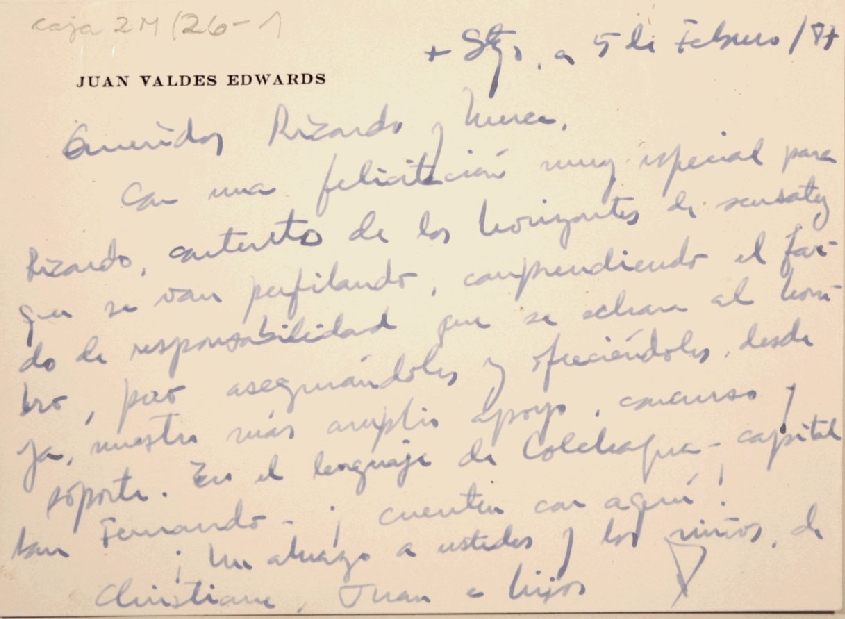 caja 2M/26-1
+ Stgo, a 5 de Febrero/87
JUAN VALDES EDWARDS
Queridos Rizardo y
Con una felicitación muy especial para
Rizardo, contento de los horizontes de sensatez
que se van perfilando, comprendiendo el far-
do de responsabilidad que se echan al hom-
bro, pero asegurándoles y ofreciéndoles, desde
ya, nuestro más amplio apoyo, concurso y
soporte. En el lenguaje de Colchagua - capital
San Fernando - ¡cuenten con aquí!
¡Un abrazo a ustedes y los niños, de
Christiane, Juan e hijos